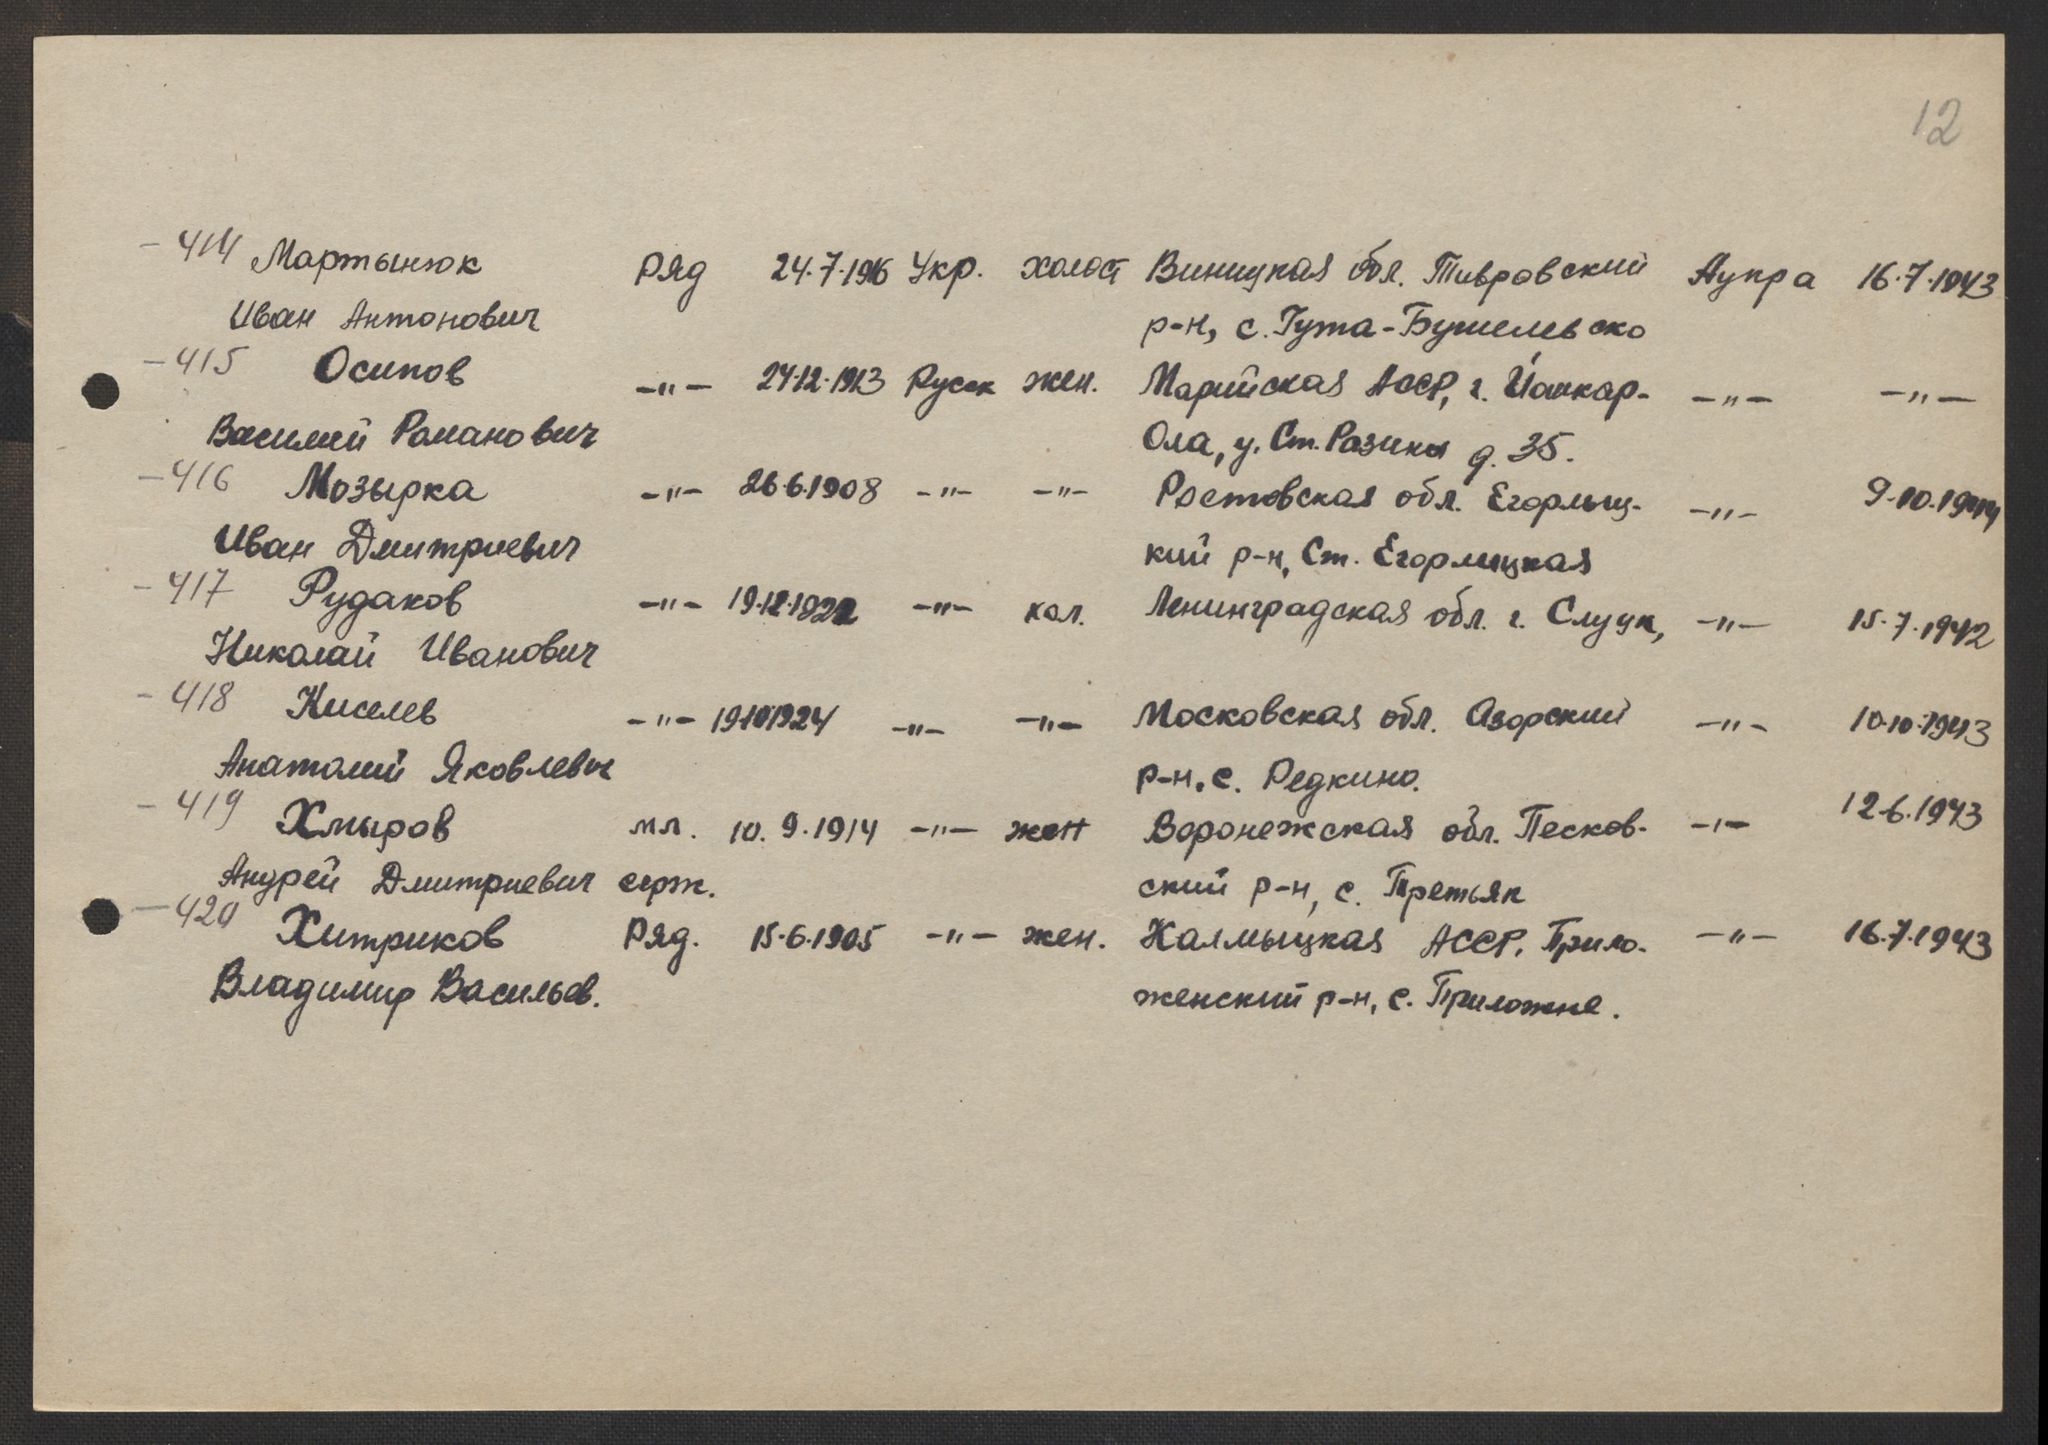 12
- 414 Мартынюк Ряд 24.7.1916 Укр. холост Виницкая обл. Тивровский Аупра 16.7.1943
Иван Антонович р-н, с. Гута-Бушелевско
- 415 Осипов -"- 24.12.1913 Русск жен. Марийская АССР, г. Йошкар- -"- -"-
Василий Романович Ола, у. Ст. Разины д. 35.
- 416 Мозырка -"- 26.6.1908 -"- -"- Ростовская обл. Егорлыц- -"- 9.10.1944
Иван Дмитриевич кий р-н, Ст. Егорлицкая
- 417 Рудаков -"- 19.12.1922 -"- хол. Ленинградская обл. г. Слуцк, -"- 15.7.1942
Николай Иванович
- 418 Киселев -"- 19.10.1924 -"- -"- Московская обл. Азорский -"- 10.10.1943
Анатолий Яковлевич р-н. с. Редкино.
- 419 Хмыров мл. 10.9.1914 -"- жен Воронежская обл. Песков- -"- 12.6.1943
Андрей Дмитриевич серж. ский р-н, с. Третьяк
- 420 Хитриков Ряд. 15.6.1905 -"- жен. Калмыцкая АССР. Прило- -"- 16.7.1943
Владимир Васильев. женский р-н, с. Приложне.